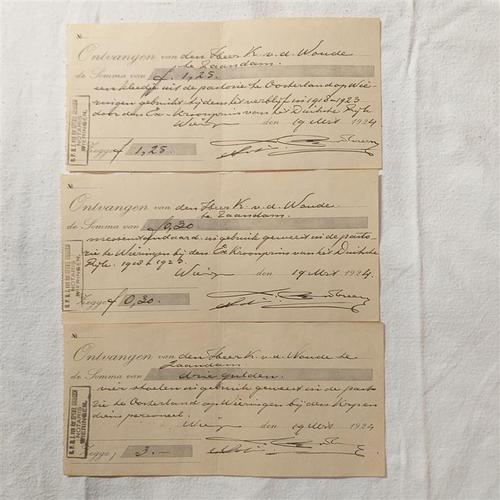 №
Ontvangen van den Heer K. v. d. Woude
te Zaandam.
de Somma van f. 1,25
een kleedje uit de pastorie te Oosterland op Wie-
ringen gebruikt tijdens het verblijf in 1918-1923
door den Ex-Kroonprins van het Duitsche Rijk
Wieringen den 19 Mrt 1924
Zegge f 1,25
NOTARIS
WIERINGEN.
№
Ontvangen van den Heer K. v. d. Woude
te Zaandam.
de Somma van f 0,20
messenstandaard in gebruik geweest in de pasto-
rie te Wieringen bij den Ex Kroonprins van het Duitsche
Rijk. 1918 1923.
Wieringen den 19 Mrt 1924.
Zegge f 0,20.
NOTARIS
WIERINGEN.
№
Ontvangen van den Heer K. v. d. Woude te
Zaandam
de Somma van drie gulden.
vier stoelen in gebruik geweest in de pasto-
rie te Oosterland op Wieringen bij des Kroon-
prins personeel.
Wieringen den 19 Mrt 1924
Zegge f 3.-
NOTARIS
WIERINGEN.